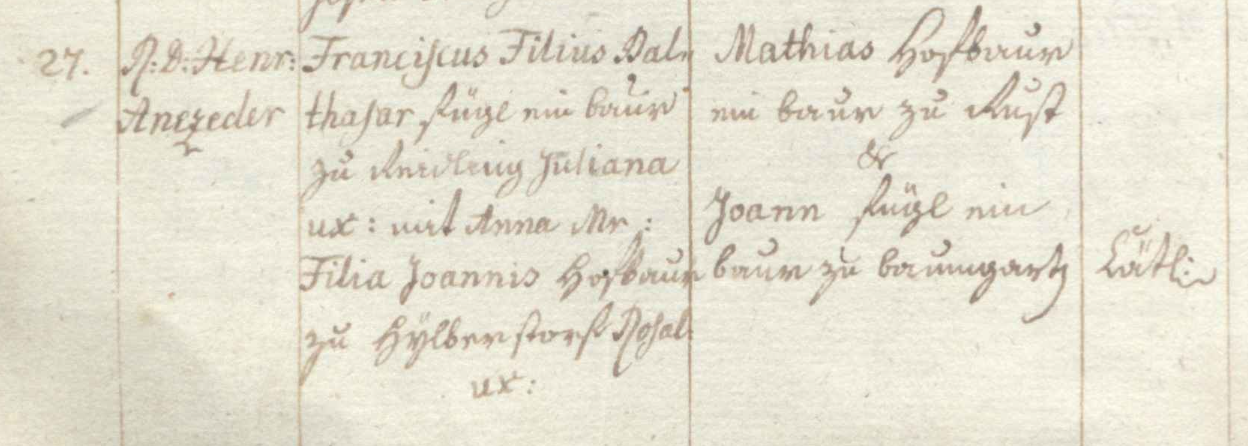 27.
R: D: Henr:
Anczeder
Franciscus Filius Bal-
thasar Fügl ein baur
zu Reidling Juliana
ux: mit Anna Mr:
Filia Joannis Hofbaur
zu Hÿlberstorf Rosal:
ux:
Mathias Hofbaur
ein baur zu Rust
&
Joann Fügl ein
baur zu baumgart